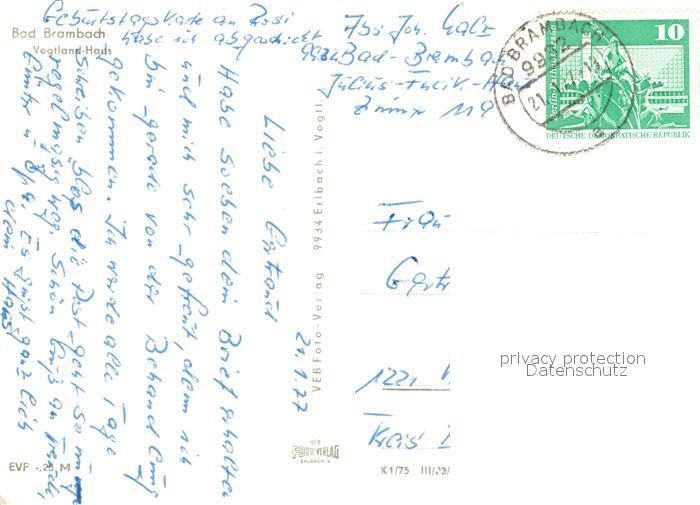 Geburtstagskarte an Rosi
habe ich abgeschickt
Bad Brambach
Vogtland-Haus
Abs. Joh.
9932 Bad-Brambach
Julius-Fucik-Haus
Zimmer 119
BAD BRAMBACH
9932
10
DEUTSCHE DEMOKRATISCHE REPUBLIK
21.1.77
Liebe Gertraud
Habe soeben dein Brief erhalten
und mich sehr gefreut, denn ich
bin gerade von der Behandlung
gekommen. Ich werde alle Tage
schreiben blos die Post geht so
regelmäsig weg. Schön Gruß an
Es grüst ganz lieb
dein Hans
VEB Foto-Verlag 9934 Erlbach i. Vogtl.
Frau
Gertr
1221
Kreis
privacy protection
Datenschutz
VEB
FOTO VERLAG
ERLBACH V.
EVP -,25 M
K1/75 III/23/